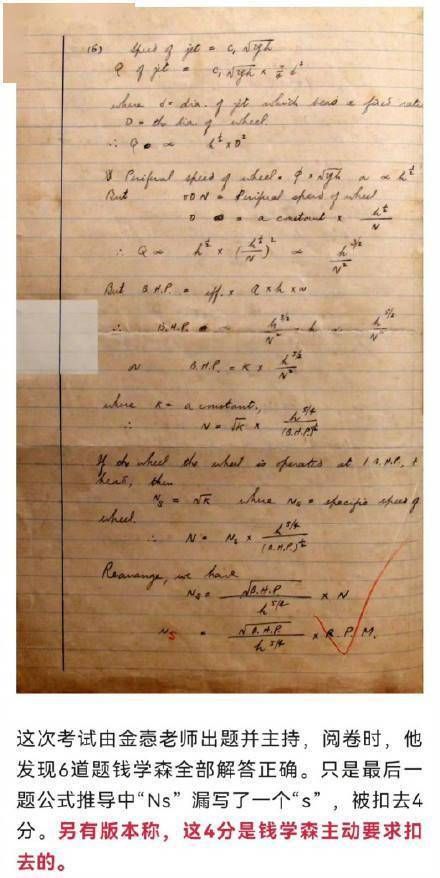 (6) Speed of jet = c, √2gh
Q of jet = c, √2gh × π/4 d²
where d = dia. of jet which bears a fixed ratio
D = the dia. of wheel.
∴ Q ∝ h^½ × D²
Periferal speed of wheel = φ × √2gh or ∝ h^½
But πDN = Periferal speed of wheel
D = a constant × h^½/N
∴ Q ∝ h^½ × (h^½/N)² ∝ h^3/2/N²
But B.H.P. = eff. × Q × h × w
∴ B.H.P. ∝ h^3/2/N² · h ∝ h^5/2/N²
or B.H.P. = K × h^5/2/N²
where K = a constant,
∴ N = √K × h^5/4/(B.H.P.)^½
If the wheel the wheel is operated at 1 B.H.P.,
head, then
Ns = √K where Ns = specific speed of
wheel.
∴ N = Ns × h^5/4/(B.H.P.)^½
Rearrange, we have
Ns = √B.H.P/h^5/4 × N
Ns = √B.H.P./h^5/4 × R.P.M.
这次考试由金悫老师出题并主持，阅卷时，他
发现6道题钱学森全部解答正确。只是最后一
题公式推导中“Ns”漏写了一个“s”，被扣去4
分。另有版本称，这4分是钱学森主动要求扣
去的。